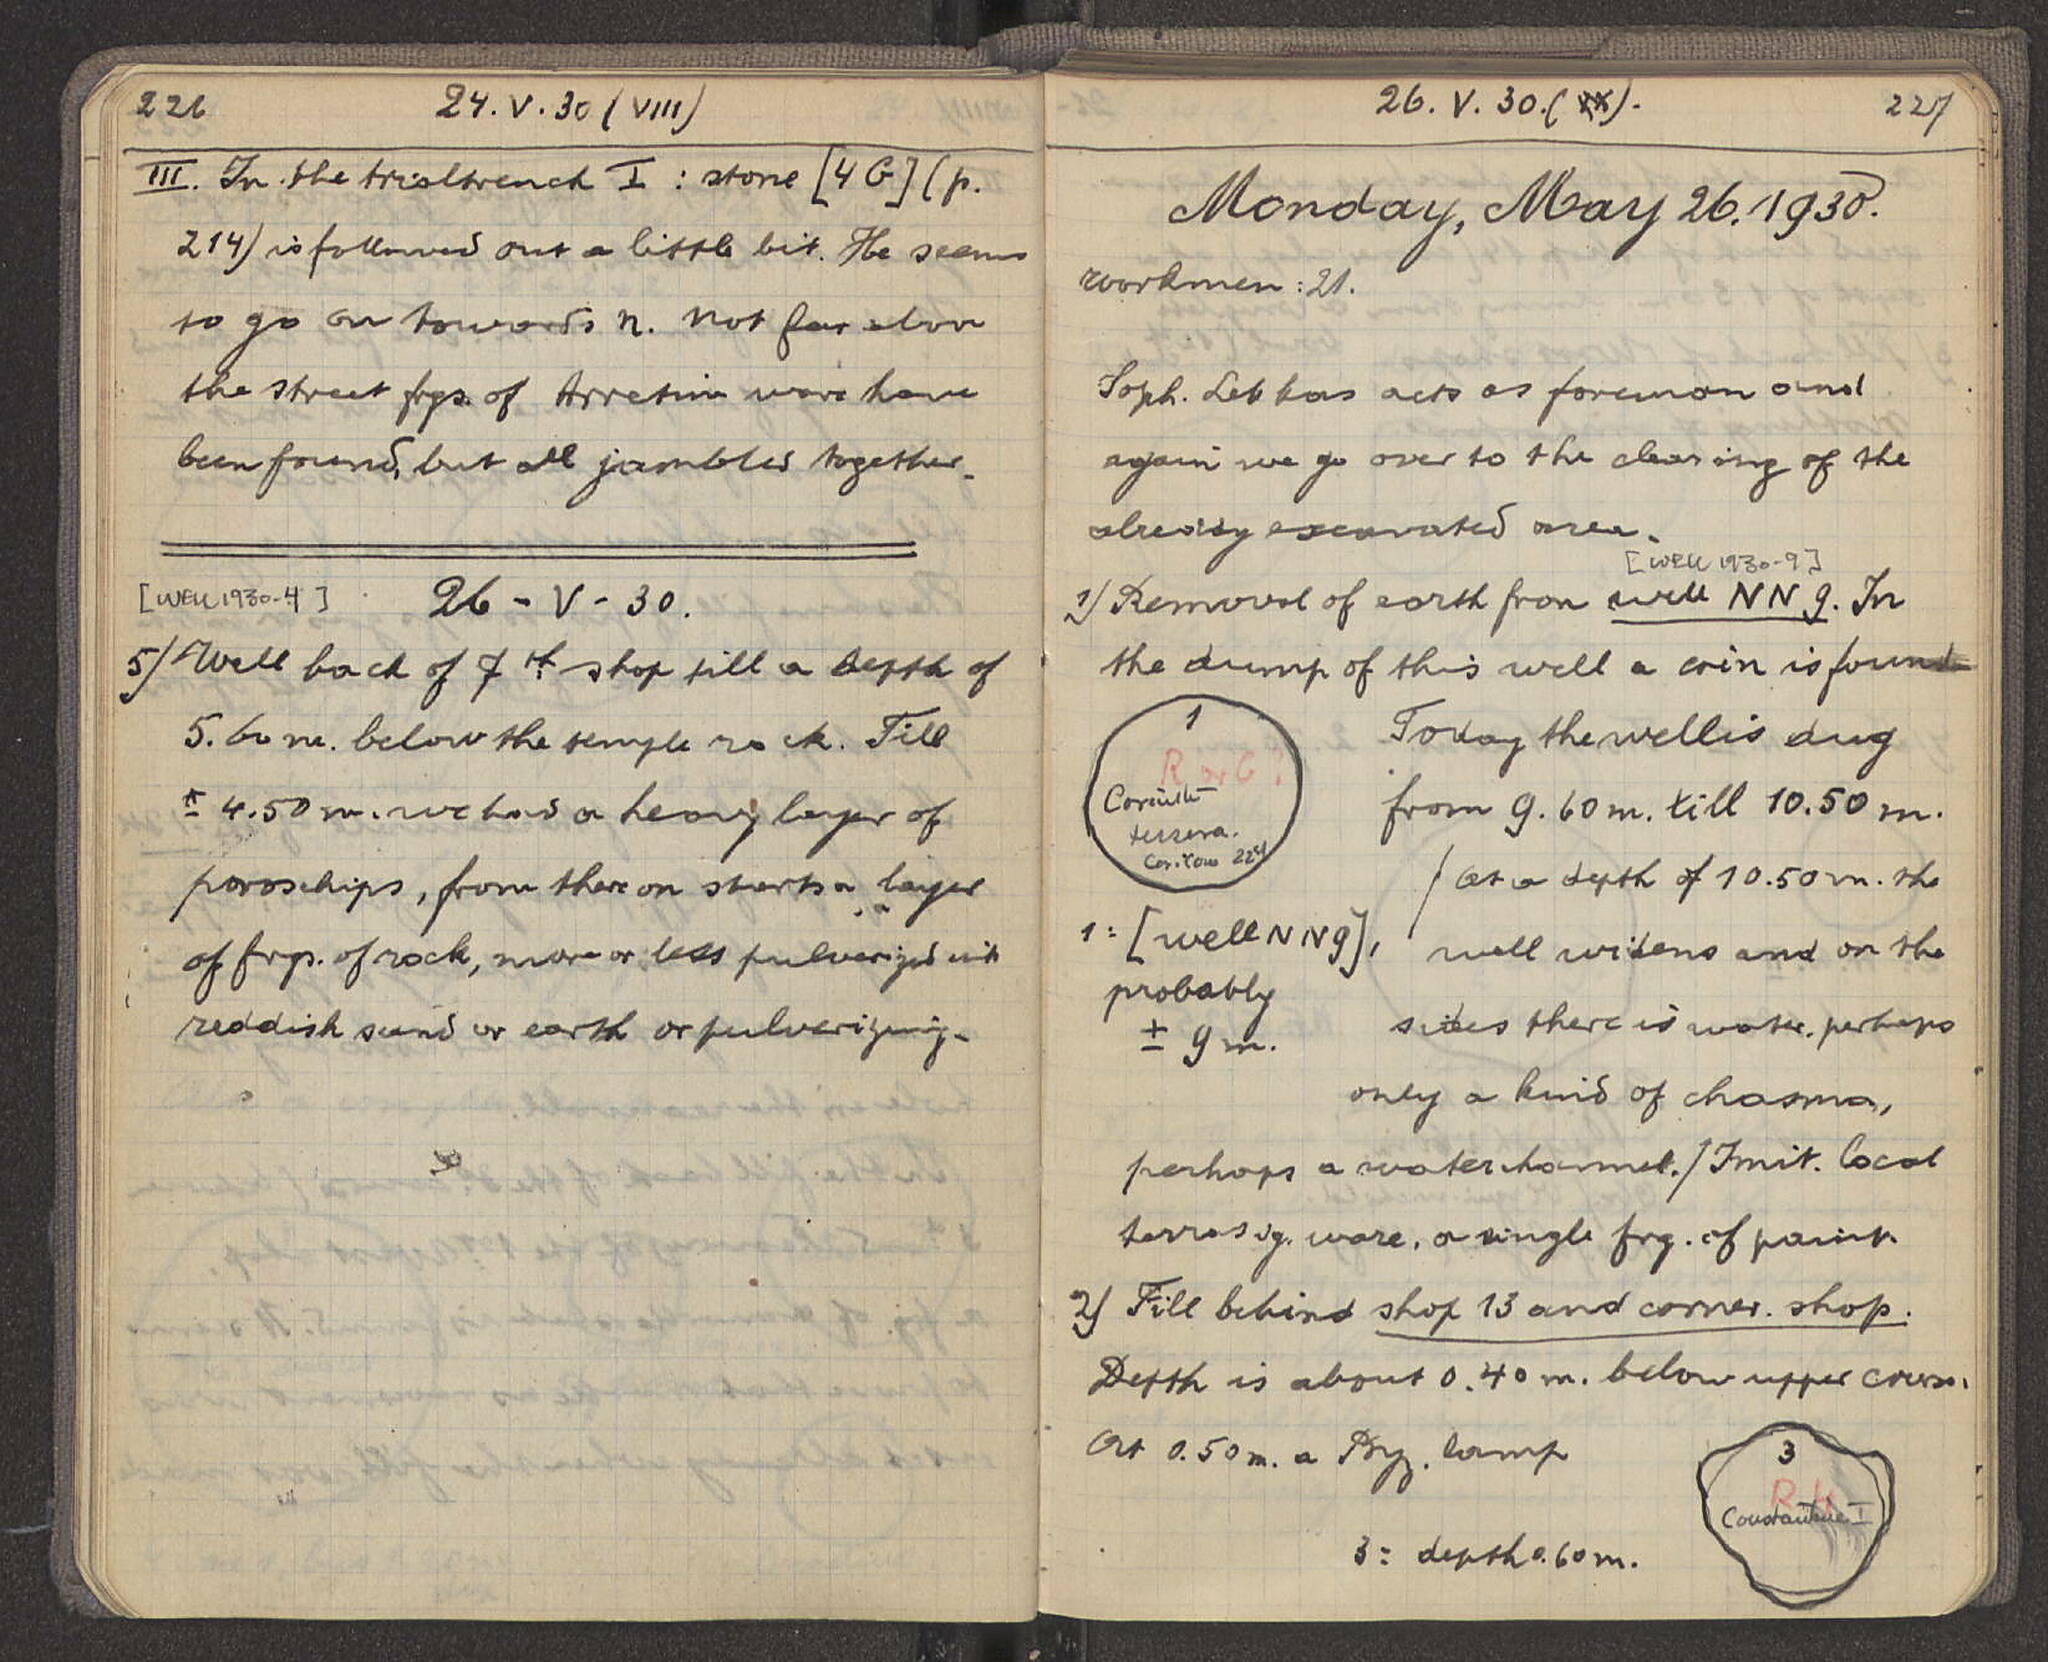 226
24. V. 30 (VIII)
III. In the trialtrench I : stone [4 G] (p.
214) is followed out a little bit. He seems
to go on towards N. Not far above
the street frgs. of Arretine ware have
been found, but all jambled together.
26 - V - 30.
[WELL 1930-4]
5) Well back of 7th shop till a depth of
5.60 m. below the temple rock. Till
± 4.50 m. we had a heavy layer of
poroschips, from there on starts a layer
of frgs. of rock, more or less pulverized with
reddish sand or earth or pulverizing.
26. V. 30. (XX).
227
Monday, May 26. 1930.
workmen : 21.
Soph. Lekkas acts as foreman and
again we go over to the clearing of the
already excavated area.
[WELL 1930-9]
1) Removal of earth from well NN 9. In
the dump of this well a coin is found
1
R or G ?
Corinth
tessera.
Cor. Row 224
Today the well is dug
from 9.60 m. till 10.50 m.
/ At a depth of 10.50 m. the
1 = [well NN 9],
probably
± 9 m.
well widens and on the
sides there is water. perhaps
only a kind of chasma,
perhaps a waterchannel. / Imit. local
terra sig. ware, a single frg. of paint.
2) Fill behind shop 13 and corner. shop.
Depth is about 0.40 m. below upper course.
At 0.50 m. a Byz. lamp
3
R H
Constantine I
3 = depth 0.60 m.